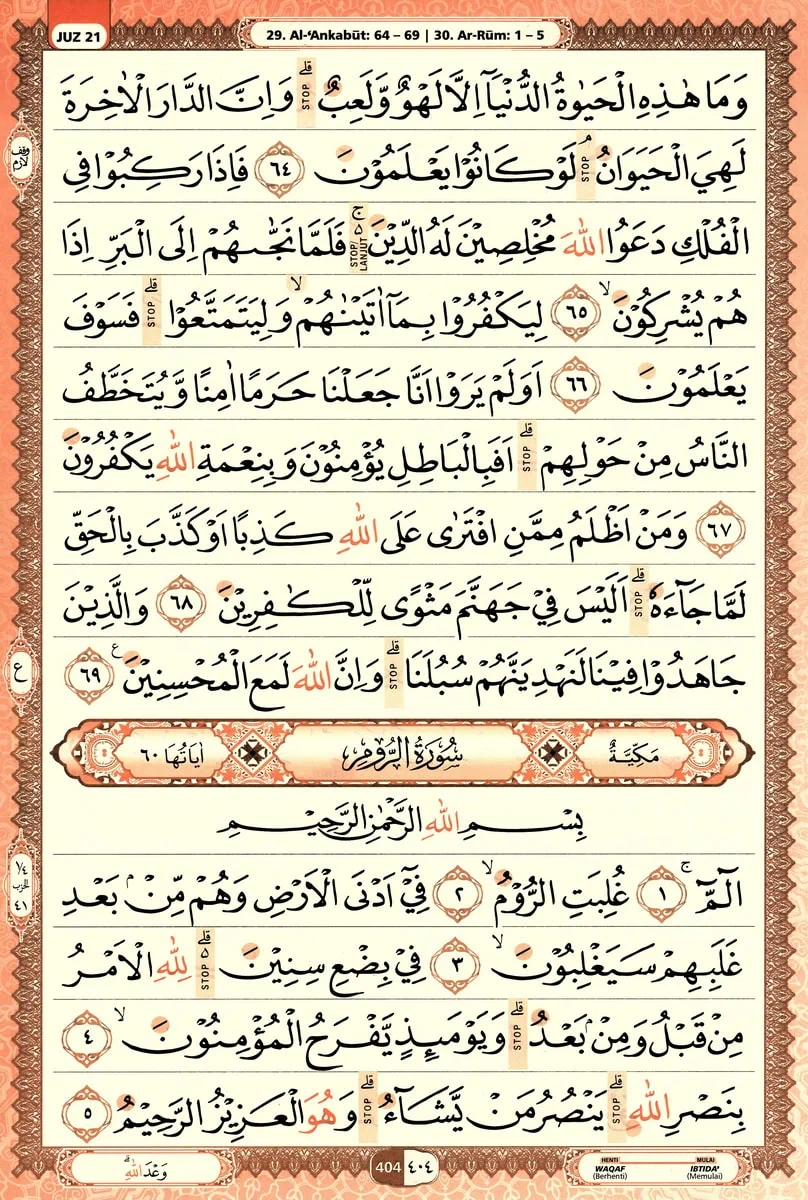 JUZ 21
29. Al-‘Ankabūt: 64 – 69 | 30. Ar-Rūm: 1 – 5
وَمَا هٰذِهِ الْحَيٰوةُ الدُّنْيَآ اِلَّا لَهْوٌ وَّلَعِبٌ ۗ STOP وَاِنَّ الدَّارَ الْاٰخِرَةَ
وقف لازم
لَهِيَ الْحَيَوَانُ ۘ STOP لَوْ كَانُوْا يَعْلَمُوْنَ ٦٤ فَاِذَا رَكِبُوْا فِى
الْفُلْكِ دَعَوُا اللّٰهَ مُخْلِصِيْنَ لَهُ الدِّيْنَ ەۚ STOP/LANJUT فَلَمَّا نَجّٰىهُمْ اِلَى الْبَرِّ اِذَا
هُمْ يُشْرِكُوْنَۙ ٦٥ لِيَكْفُرُوْا بِمَآ اٰتَيْنٰهُمْۙ وَلِيَتَمَتَّعُوْاۗ STOP فَسَوْفَ
يَعْلَمُوْنَ ٦٦ اَوَلَمْ يَرَوْا اَنَّا جَعَلْنَا حَرَمًا اٰمِنًا وَّيُتَخَطَّفُ
النَّاسُ مِنْ حَوْلِهِمْۗ STOP اَفَبِالْبَاطِلِ يُؤْمِنُوْنَ وَبِنِعْمَةِ اللّٰهِ يَكْفُرُوْنَ
٦٧ وَمَنْ اَظْلَمُ مِمَّنِ افْتَرٰى عَلَى اللّٰهِ كَذِبًا اَوْ كَذَّبَ بِالْحَقِّ
لَمَّا جَاۤءَهٗۗ STOP اَلَيْسَ فِيْ جَهَنَّمَ مَثْوًى لِّلْكٰفِرِيْنَ ٦٨ وَالَّذِيْنَ
جَاهَدُوْا فِيْنَا لَنَهْدِيَنَّهُمْ سُبُلَنَاۗ STOP وَاِنَّ اللّٰهَ لَمَعَ الْمُحْسِنِيْنَ ࣖ ٦٩
ع
مَكِّيَّةٌ سُوْرَةُ الرُّوْمِ اٰيَاتُهَا ٦٠
بِسْمِ اللّٰهِ الرَّحْمٰنِ الرَّحِيْمِ
١/٤ الحزب ٤١
الۤمّۤۚ ١ غُلِبَتِ الرُّوْمُۙ ٢ فِيْٓ اَدْنَى الْاَرْضِ وَهُمْ مِّنْۢ بَعْدِ
غَلَبِهِمْ سَيَغْلِبُوْنَۙ ٣ فِيْ بِضْعِ سِنِيْنَ ەۗ STOP لِلّٰهِ الْاَمْرُ
مِنْ قَبْلُ وَمِنْۢ بَعْدُۗ STOP وَيَوْمَىِٕذٍ يَّفْرَحُ الْمُؤْمِنُوْنَۙ ٤
بِنَصْرِ اللّٰهِۗ STOP يَنْصُرُ مَنْ يَّشَاۤءُۗ STOP وَهُوَ الْعَزِيْزُ الرَّحِيْمُ ٥
وَعْدَ اللّٰهِۗ
404 ٤٠٤
HENTI WAQAF (Berhenti)
MULAI IBTIDA' (Memulai)